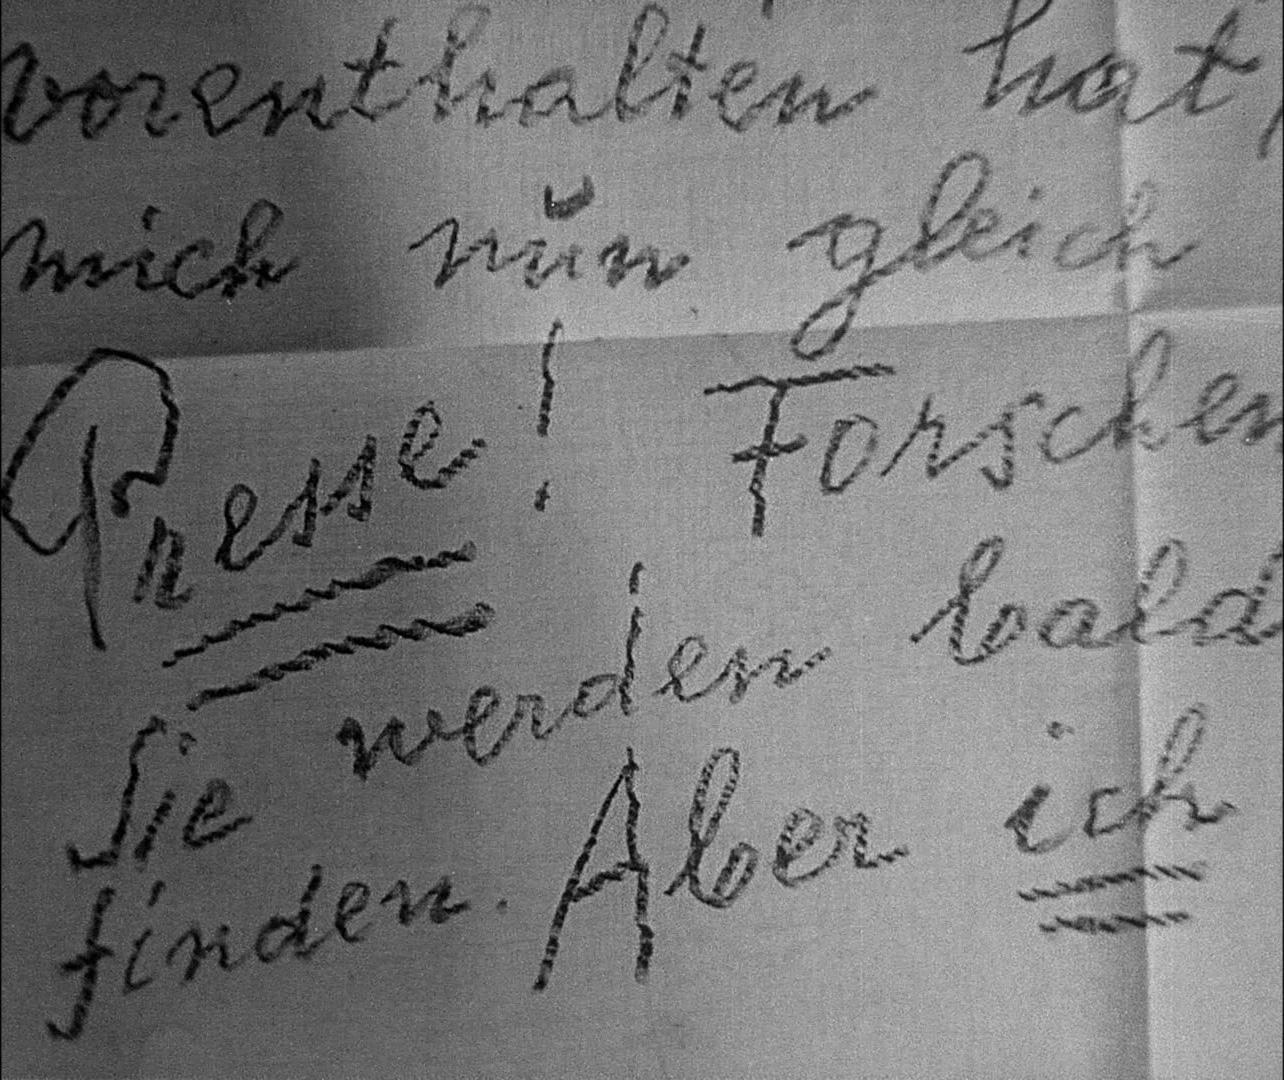 vorenthalten hat,
mich nun gleich
Presse! Forschen
Sie werden bald
finden. Aber ich